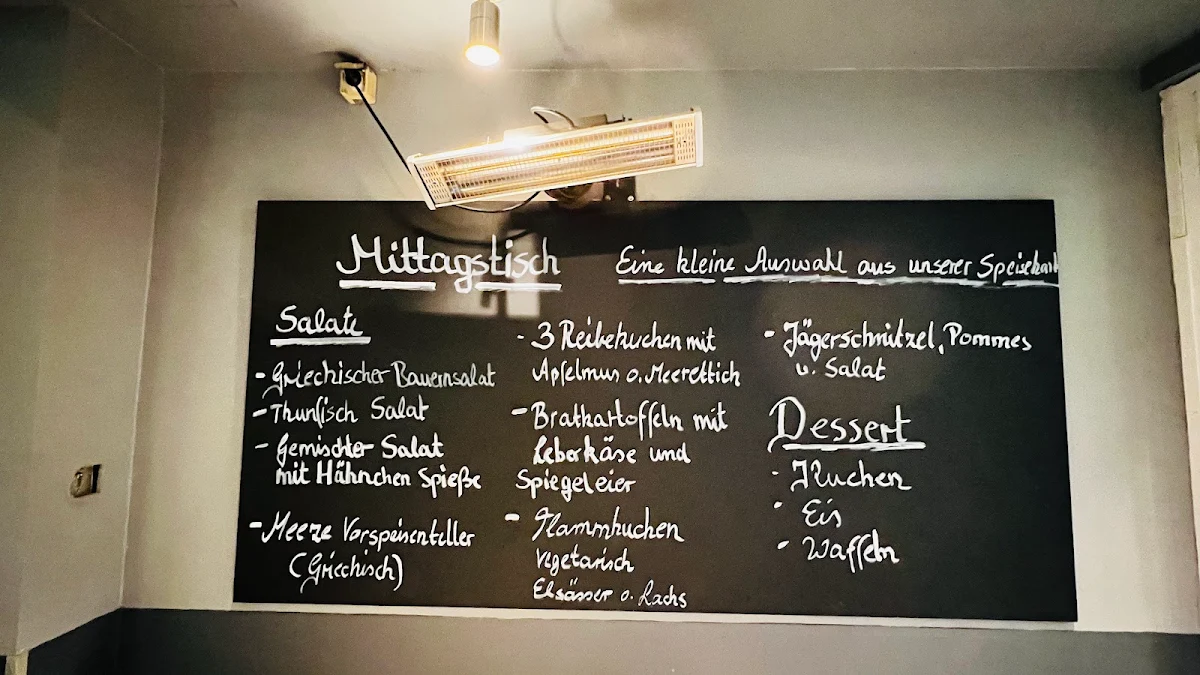 Mittagstisch
Eine kleine Auswahl aus unserer Speisekart
Salate
- Griechischer Bauernsalat
- Thunfisch Salat
- Gemischter Salat
mit Hähnchen Spieße
- Meeze Vorspeisenteller
(Griechisch)
- 3 Reibekuchen mit
Apfelmus o. Meerettich
- Bratkartoffeln mit
Leberkäse und
Spiegeleier
- Flammkuchen
vegetarisch
Elsässer o. Lachs
- Jägerschnitzel, Pommes
u. Salat
Dessert
- Kuchen
- Eis
- Waffeln